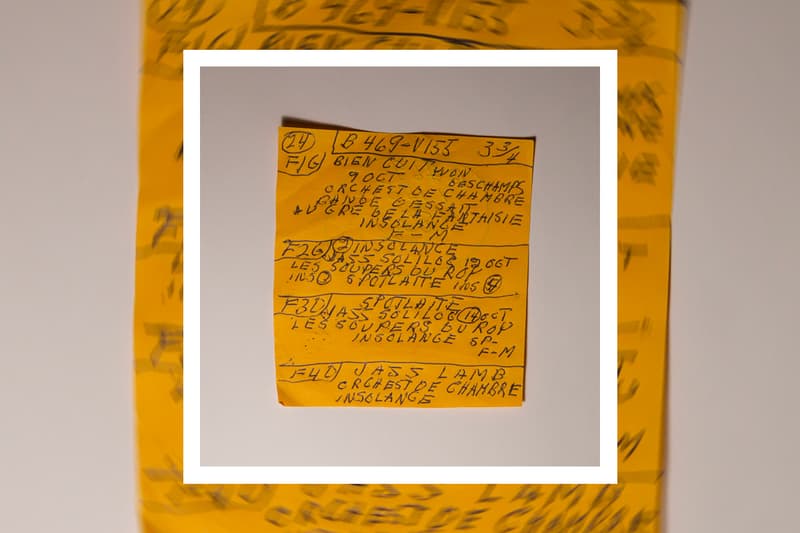 24 B 469-V155 3 3/4
F1G BIEN CUIT NON
9 OCT DESCHAMPS
ORCHEST DE CHAMBRE
BANDE GESSAIT
AU GRE DE LA FANTAISIE
INSOLANGE
F-M
F2G INSOLANGE
JASS SOLILOG 19 OCT
LES SOUPERS DU ROY
INS SPOTLAITE INS
F3D SPOTLAITE
JASS SOLILOG 14 OCT
LES SOUPERS DU ROY
INSOLANGE SP-
F-M
F4D JASS LAMB
ORCHEST DE CHAMBRE
INSOLANGE